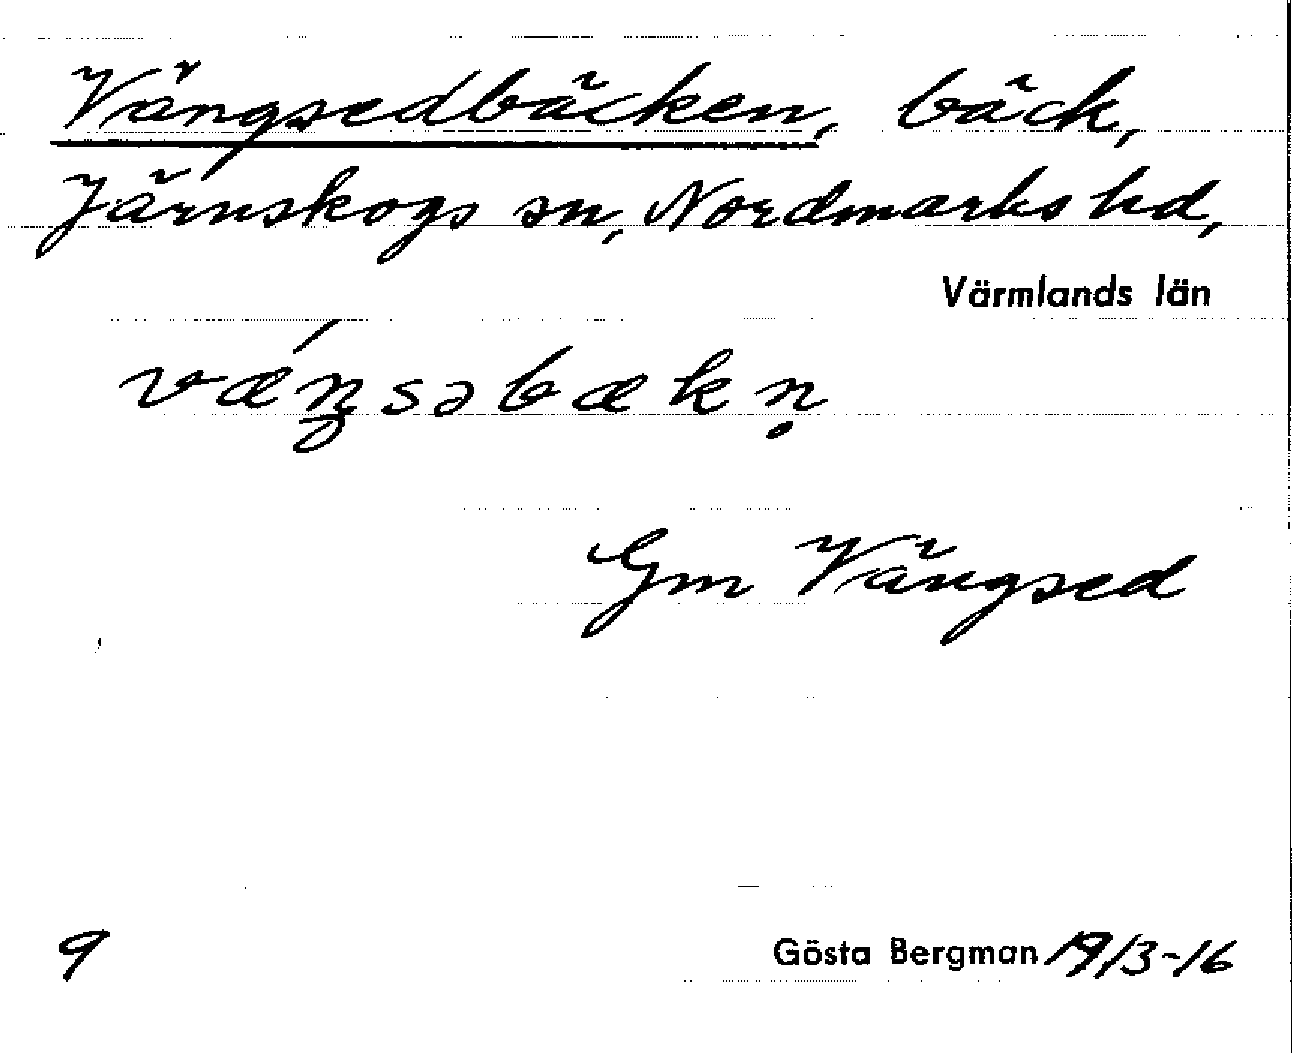 Vängsedbäcken, bäck,
Järnskogs sn, Nordmarks hd,
Värmlands län
vǽŋsəbækn̥
Gm Vängsed
9
Gösta Bergman 19/3-16